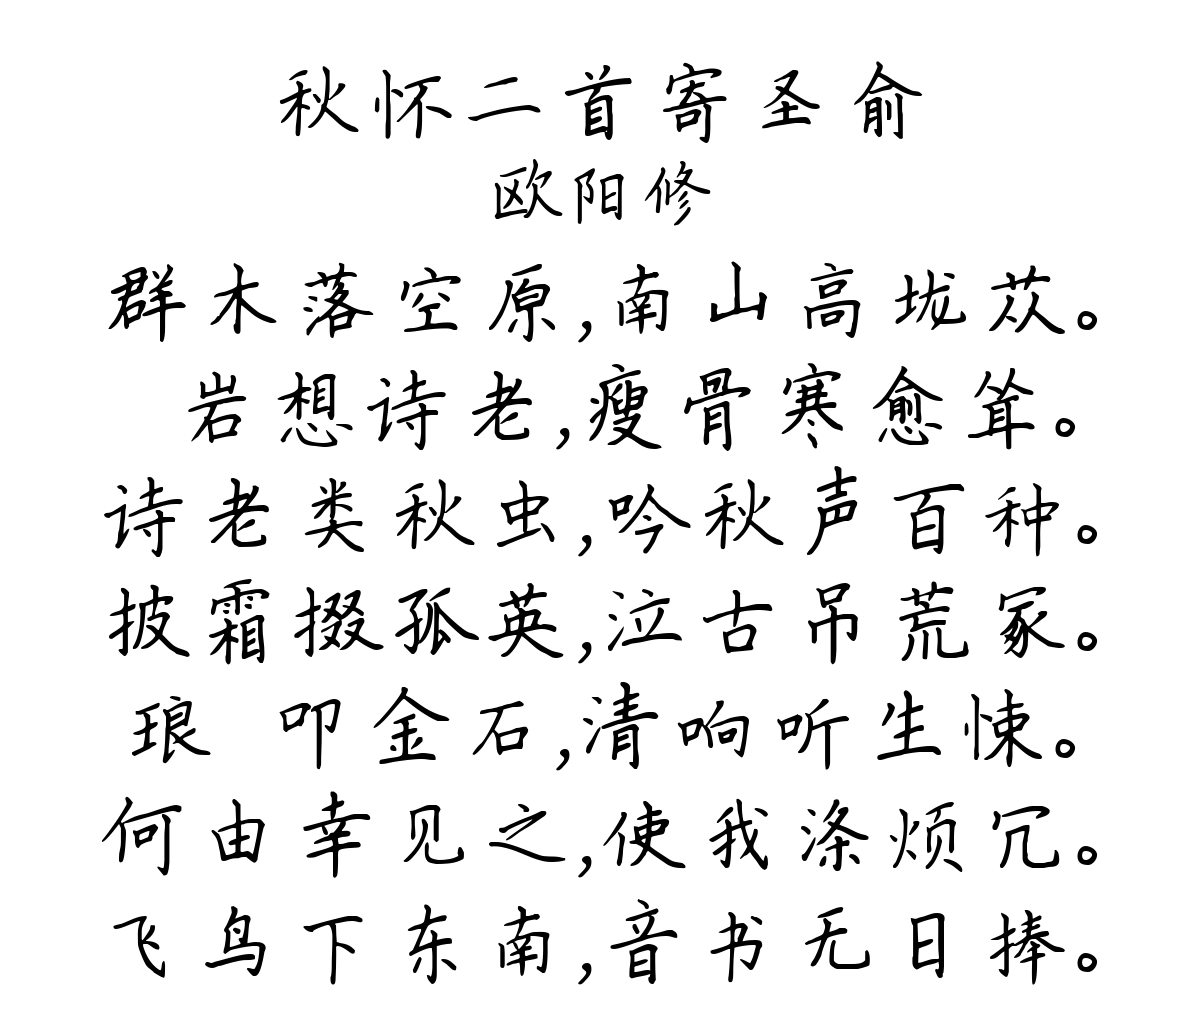 秋怀二首寄圣俞
欧阳修
群木落空原,南山高垅苁。
岩想诗老,瘦骨寒愈耸。
诗老类秋虫,吟秋声百种。
披霜掇孤英,泣古吊荒冢。
琅 叩金石,清响听生悚。
何由幸见之,使我涤烦冗。
飞鸟下东南,音书无日捧。